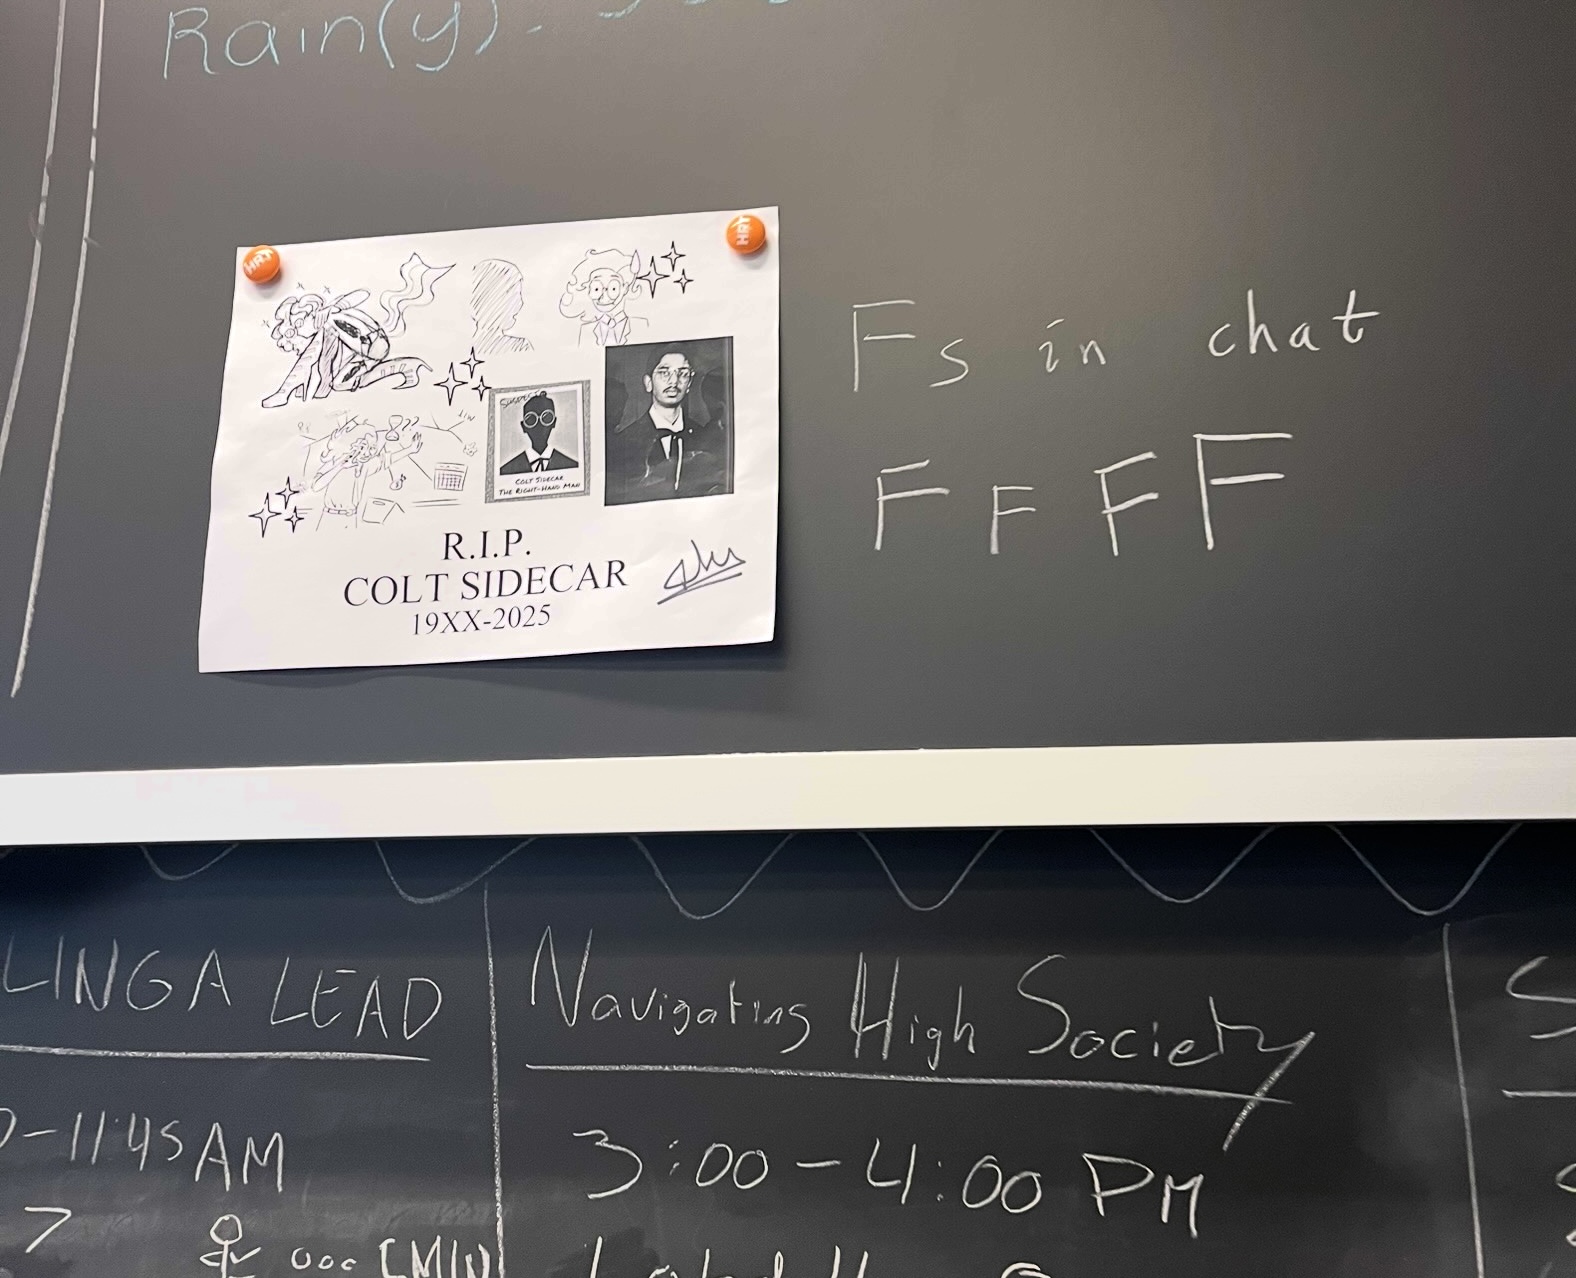 Rain(y).
HRT
HRT
SUSPECT
COLT SIDECAR
THE RIGHT-HAND MAN
R.I.P.
COLT SIDECAR
19XX-2025
Fs in chat
F F F F
LING A LEAD
-11:45 AM
Navigating High Society
3:00-4:00 PM